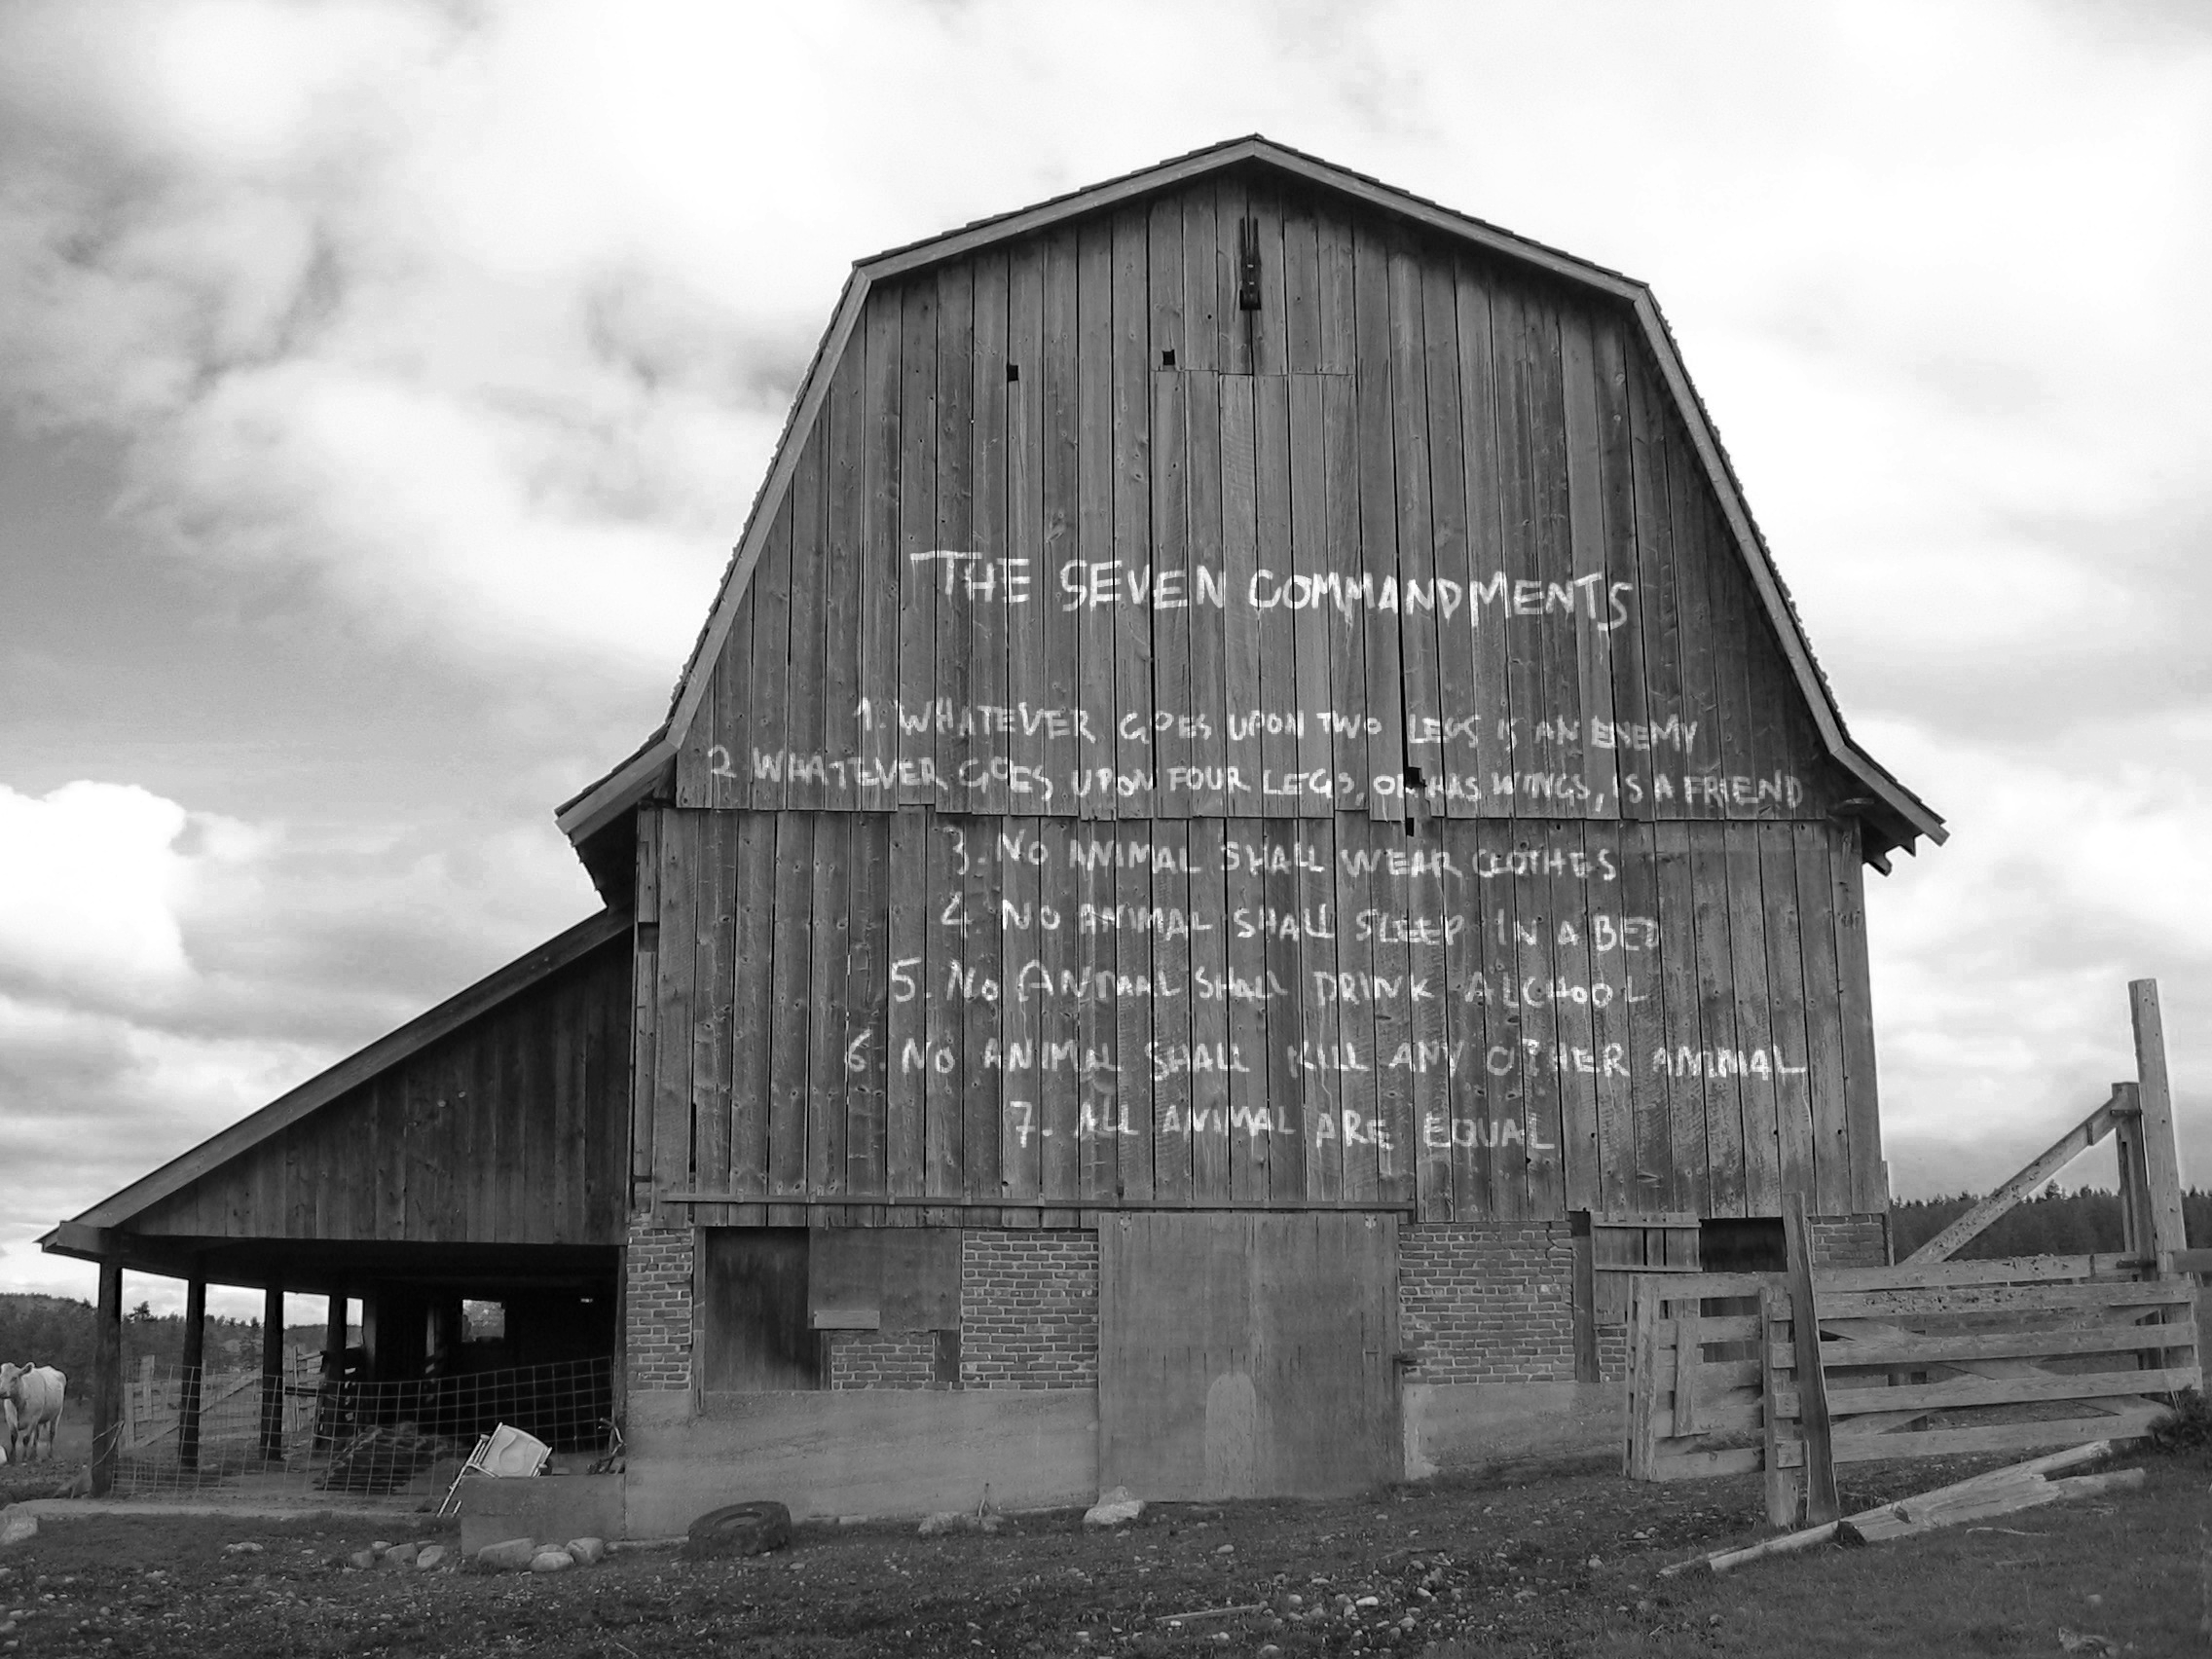 THE SEVEN COMMANDMENTS
1. WHATEVER GOES UPON TWO LEGS IS AN ENEMY
2 WHATEVER GOES UPON FOUR LEGS, OR HAS WINGS, IS A FRIEND
3. NO ANIMAL SHALL WEAR CLOTHES
4. NO ANIMAL SHALL SLEEP IN A BED
5. NO ANIMAL SHALL DRINK ALCHOOL
6. NO ANIMAL SHALL KILL ANY OTHER ANIMAL
7. ALL ANIMAL ARE EQUAL